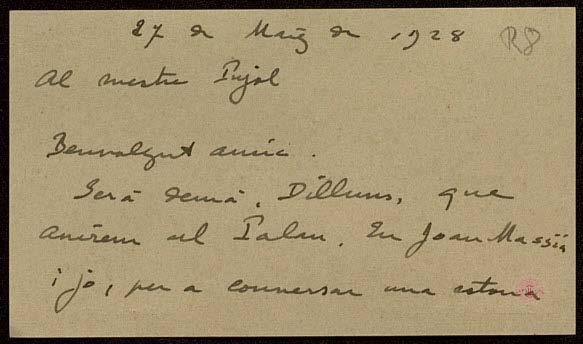 27 de Maig de 1928
R8
Al mestre Pujol
Benvolgut amic.
Serà demà, Dilluns, que
anirem al Palau, En Joan Massià
i jo, per a conversar una estona